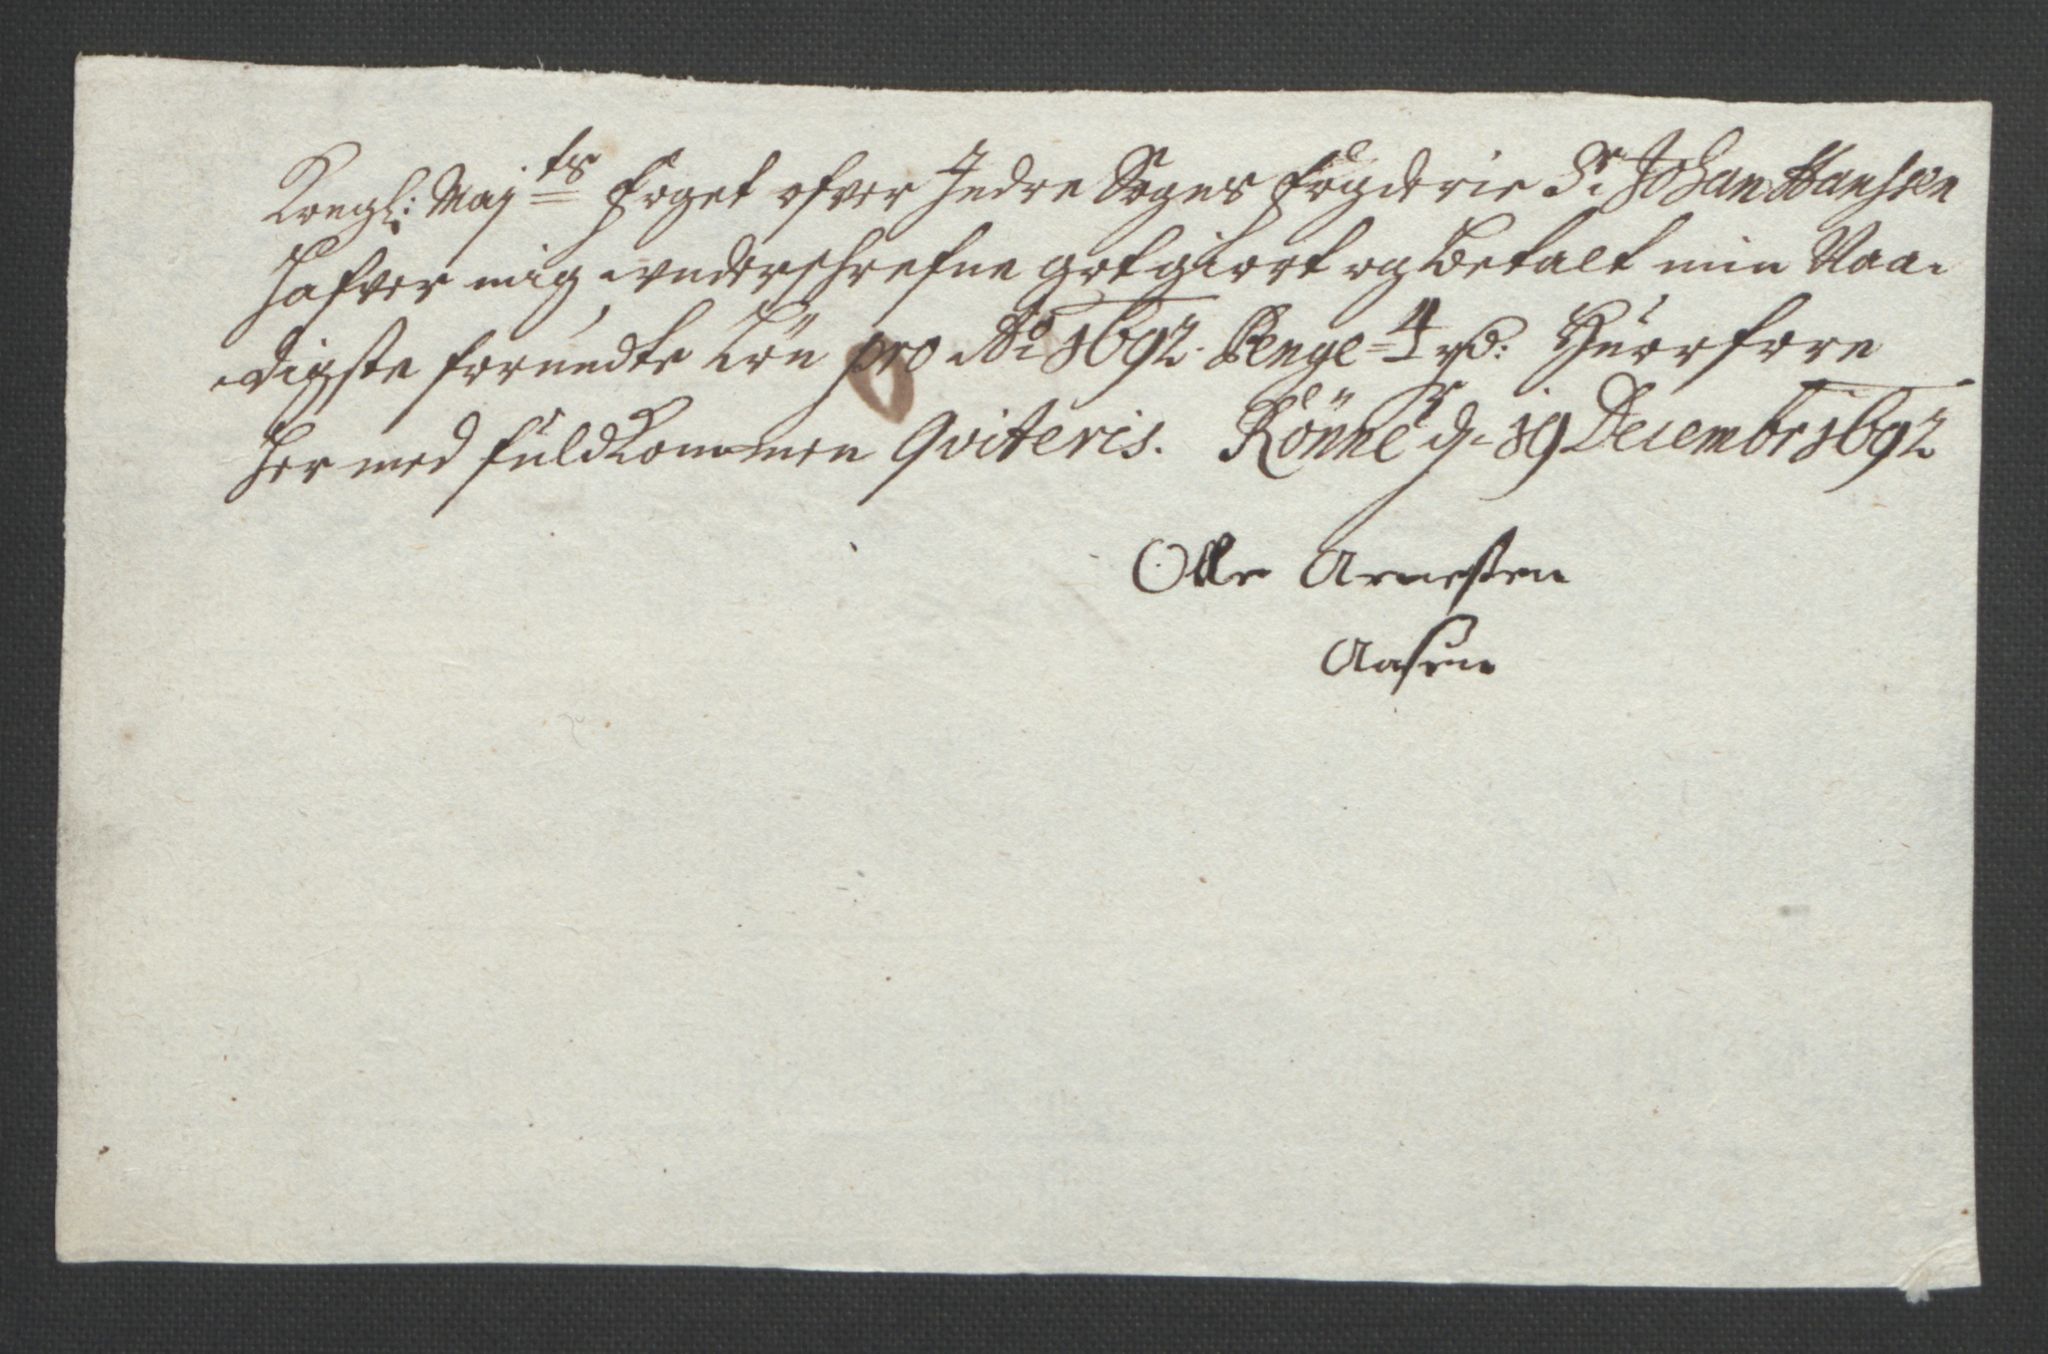 Kongl: Maj^ts Foget ofver Indre Sogns Fogderie Sr. Johan Hansen
hafver mig underschrefne got giort og betalt min Naa-
digste forundte Løn pro Ao 1692. Penge 4 rd: Huorfore
her med fuldkommen Qviteris. Rönne d. 19 Decembr 1692
Olle Arnesen
Aasen